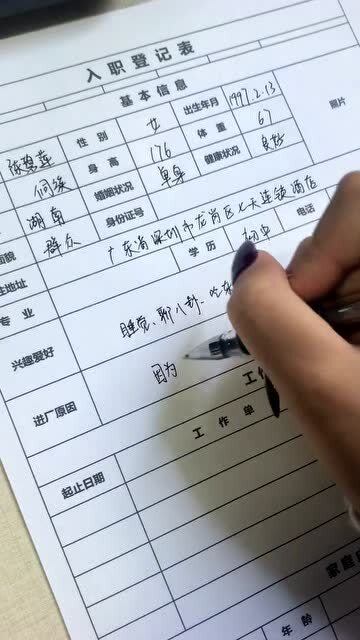 入职登记表
基本信息
性别 女 出生年月 1997.2.13 照片
侗族 身高 176 体重 67
湖南 婚姻状况 单身 健康状况 良好
群众 身份证号
地址 广东省深圳市龙岗区七天连锁酒店
专业 学历 初中 电话
兴趣爱好 睡觉、聊八卦、吃东
进厂原因 因为
工作单
起止日期
家庭
年龄